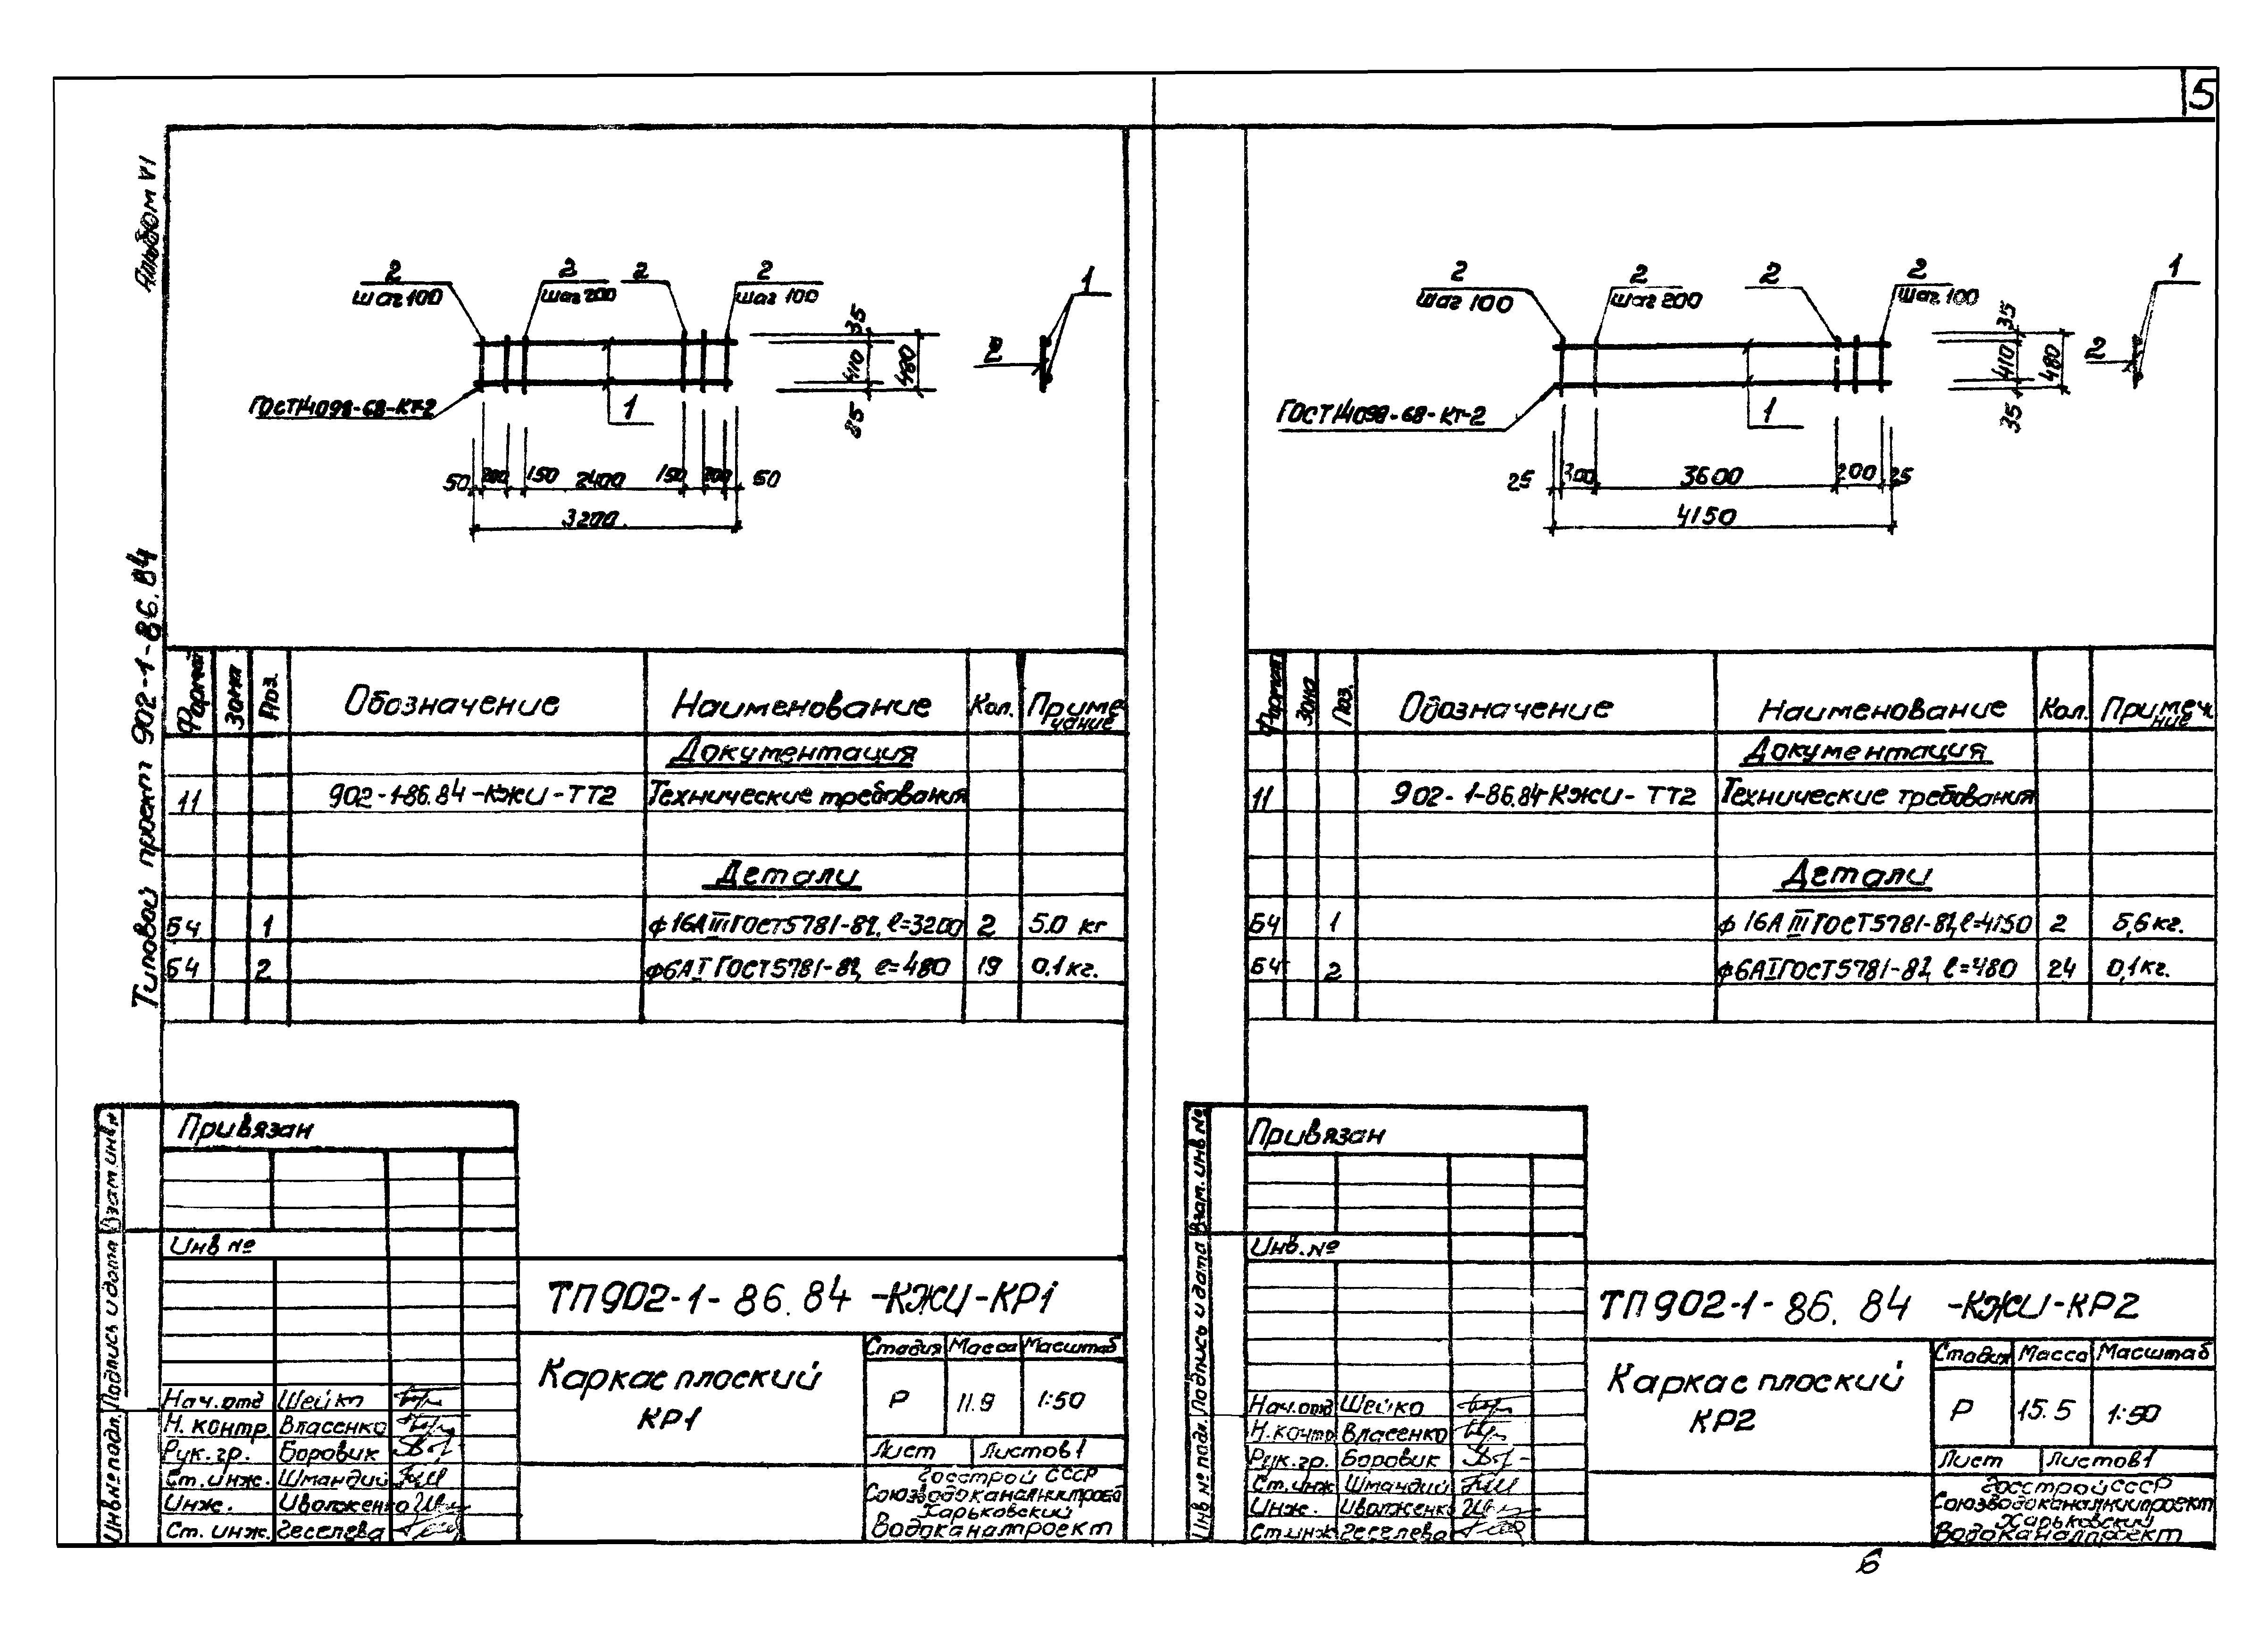 5
Альбом VI
Типовой проект 902-1-86.84
2
шаг 100
2
шаг 200
2
2
шаг 100
1
35
410
480
2
ГОСТ14098-68-КТ-2
1
50 200 150 2400 150 200 50
3200
Формат Зона Поз. Обозначение Наименование Кол. Примечание
Документация
11 902-1-86.84-КЖИ-ТТ2 Технические требования
Детали
БЧ 1 ф16АIII ГОСТ5781-82, l=3200 2 5.0 кг
БЧ 2 ф6АI ГОСТ5781-82, l=480 19 0.1кг.
Привязан
Инв №
ТП902-1-86.84-КЖИ-КР1
Каркас плоский
КР1
Стадия Масса Масштаб
Р 11.9 1:50
Лист Листов 1
Госстрой СССР
Союзводоканалниипроект
Харьковский
Водоканалпроект
Нач.отд Шейко
Н.контр. Власенко
Рук.гр. Боровик
Ст.инж. Шмандий
Инж. Иволженко
Ст. инж. Геселева
Инв№подл. Подпись и дата Взам.инв.№
2
шаг 100
2
шаг 200
2
2
шаг 100
1
35
410
480
35
2
ГОСТ14098-68-КТ-2
1
25 300 3600 200 25
4150
Формат Зона Поз. Обозначение Наименование Кол. Примечание
Документация
11 902-1-86.84-КЖИ-ТТ2 Технические требования
Детали
БЧ 1 ф16АIII ГОСТ5781-82, l=4150 2 6,6кг.
БЧ 2 ф6АI ГОСТ5781-82, l=480 24 0,1кг.
Привязан
Инв.№
ТП902-1-86.84 -КЖИ-КР2
Каркас плоский
КР2
Стадия Масса Масштаб
Р 15.5 1:50
Лист Листов 1
Госстрой СССР
Союзводоканалниипроект
Харьковский
Водоканалпроект
Нач.отд Шейко
Н.контр Власенко
Рук.гр. Боровик
Ст.инж Шмандий
Инж. Иволженко
Ст.инж Геселева
Инв № подл. Подпись и дата Взам. инв №
6